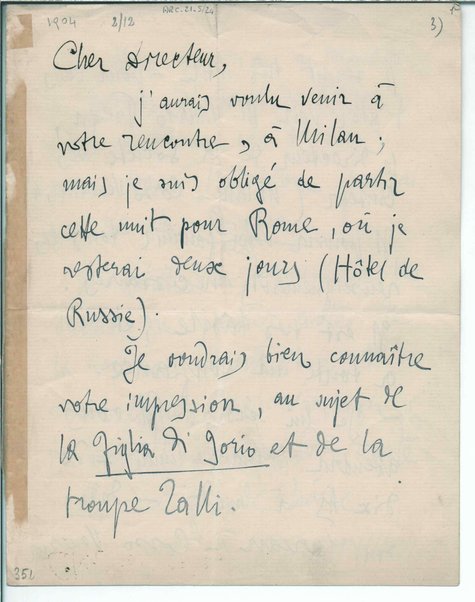 1904 2/12 ARC.21.5/24 3)
Cher Directeur,
j'aurais voulu venir à
votre rencontre, à Milan;
mais je suis obligé de partir
cette nuit pour Rome, où je
resterai deux jours (Hôtel de
Russie).
Je voudrais bien connaître
votre impression, au sujet de
la Figlia di Jorio et de la
troupe Talli.
351